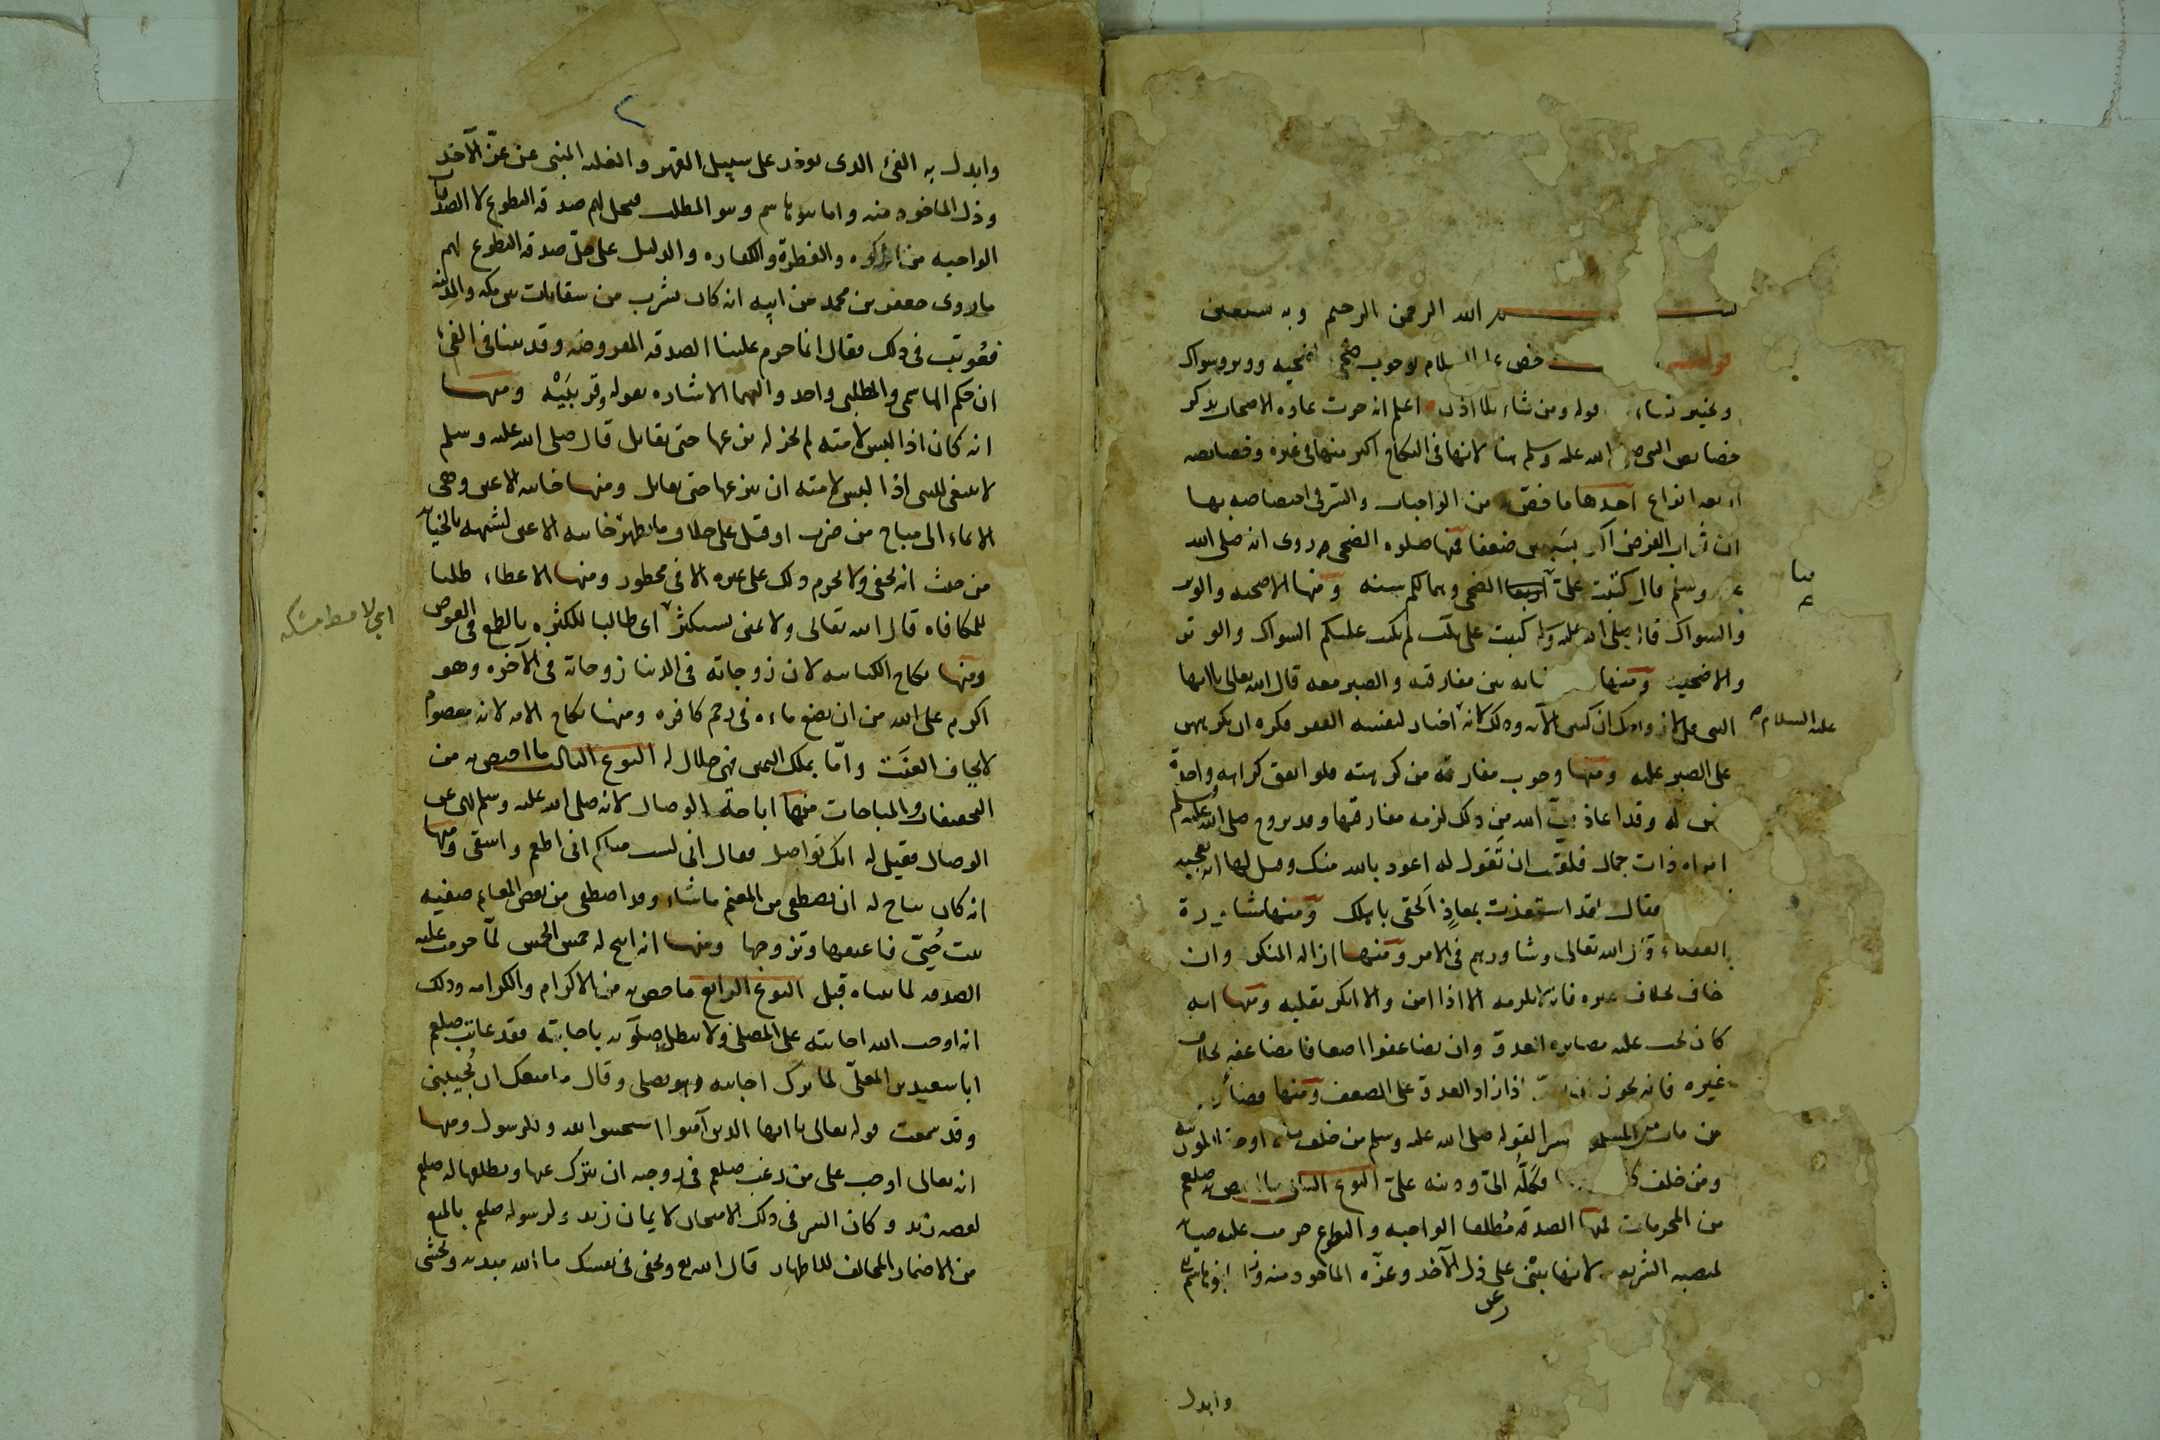 بسم الله الرحمن الرحيم وبه نستعين
خص السلام بوجوب ضحى اضحيه ووتر وسواك
وتخيير نسائه قوله ومن شاء بلا اذن اعلم انه جرت عادة الاصحاب بذكر
خصايص النبى صلى الله عليه وسلم هنا لانها فى النكاح اكثر منها فى غيره وخصايصه
اربعه انواع احدها ما خص به من الواجبات والسر فى اختصاصه بها
ان ثواب الفرض اكثر بسبعين ضعفا فمنها صلوه الضحى روى انه صلى الله
عليه وسلم قال كتبت علىّ الضحى وهما لكم سنه ومنها الاضحيه والوتر
والسواك قال صلى الله عليه وسلم كتبت على ثلث لم تكتب عليكم السواك والوتر
والاضحيه ومنها نسائه بين مفارقته والصبر معه قال الله تعالى يا ايها
النبى قل لازواجك ان كنتن الآيه وذلك لانه اختار لنفسه الفقر فكره ان يكرههن
عليه السلام
على الصبر عليه ومنها وجوب مفارقة من كرهته فلو اتفق كراهه واحدة
له وقد اعاذ الله من ذلك لزمه مفارقتها وقد تزوج صلى الله عليه وسلم
امراه ذات جمال فلقنت ان تقول له اعوذ بالله منك وقيل لها انه يعجبه
فقال لقد استعذت بمعاذٍ الحقى باهلك ومنها مشاورة
العقلاء قال الله تعالى وشاورهم فى الامر ومنها ازاله المنكر وان
خاف بخلاف غيره فانه لا يلزمه الا اذا امن والا انكر بقلبه ومنها انه
كان يجب عليه مصابره العدوّ وان تضاعفوا اضعافا مضاعفه بخلاف
غيره فانه يجوز اذا زاد العدوّ على الضعف ومنها قضاء
من مات من المسلمين معسرا لقوله صلى الله عليه وسلم من خلف مالا او حقا فلورثته
ومن خلف كلا فكلّه الىّ ودينه علىّ النوع الثانى ما اختص به صلعم
من المحرمات فمنها الصدقه مطلقا الواجبه والتطوع حرمت عليه صيانة
لمنصبه الشريف لانها تنبئ على ذل الآخذ وعزّه الماخوذ منه
وابدل
٢
وابدل به الفئ الذى يوخذ على سبيل القهر والغلبه المنبى عن عزّ الآخذ
وذل الماخوذ منه واما بنو هاشم وبنو المطلب فيحل لهم صدقه التطوع لا الصدقات
الواجبه من الزكوه والفطرة والكفاره والدليل على حلّ صدقه التطوع لهم
ما روى جعفر بن محمد عن ابيه انه كان يشرب من سقايات بين مكه والمدينه
فعُوتب فى ذلك فقال انما حرم علينا الصدقه المفروضه وقد بينا فى الفئ
ان حكم الهاشمى والمطلبى واحد واليهما الاشاره بقوله وقريبَيْه ومنها
انه كان اذا لبس لامته لم يجز له نزعها حتى يقاتل قال صلى الله عليه وسلم
لا ينبغى للنبى اذا لبس لامته ان ينزعها حتى يقاتل ومنها خاينه الاعين وهى
الايماء الى مباح من ضرب او قتل على خلاف ما يظهر خاينه الاعين لشبهه بالخيانه
من حيث انه يخفى ولا يحرم ذلك على غيره الا فى محظور ومنها الاعطاء طلبا
للمكافاه قال الله تعالى ولا تمنن تستكثر اى طالبا للكثره بالطمع فى العوض
ومنها نكاح الكتابيه لان زوجاته فى الدنيا زوجاته فى الآخره وهو
اكرم على الله من ان يضع ماءه فى رحم كافره ومنها نكاح الامه لانه معصوم
لا يخاف العنَت وامّا بملك اليمين فهى حلال له النوع الثالث ما اختص به من
التخفيفات والمباحات فمنها اباحة الوصال لانه صلى الله عليه وسلم نهى عن
الوصال فقيل له انك تواصل فقال انى لست مثلكم انى اطعم واسقى ومنها
انه كان يباح له ان يصطفى من المغنم ما شاء وقد اصطفى من بعض المغانم صفيه
بنت حُيىّ فاعتقها وتزوجها ومنها انه ابيح له خمس الخمس لمّا حرمت عليه
الصدقه لما بيناه قبل النوع الرابع ما خص به من الاكرام والكرامه وذلك
انه اوجب الله اجابته على المصلى ولا تبطل صلوته باجابته فقد عاتب صلعم
ابا سعيد بن المعلّى لما ترك اجابته وهو يصلى وقال ما منعك ان تُجيبنى
وقد سمعت قوله تعالى يا ايها الذين آمنوا استجيبوا لله وللرسول ومنها
انه تعالى اوجب على من رغب صلعم فى زوجته ان يترك عنها ويطلقها له صلعم
لقصه زيد وكان السر فى ذلك الامتحان لايمان زيد ولرسوله صلعم بالمنع
من الاضمار المخالف للاظهار قال الله تع وتخفى فى نفسك ما الله مبديه وتخشى